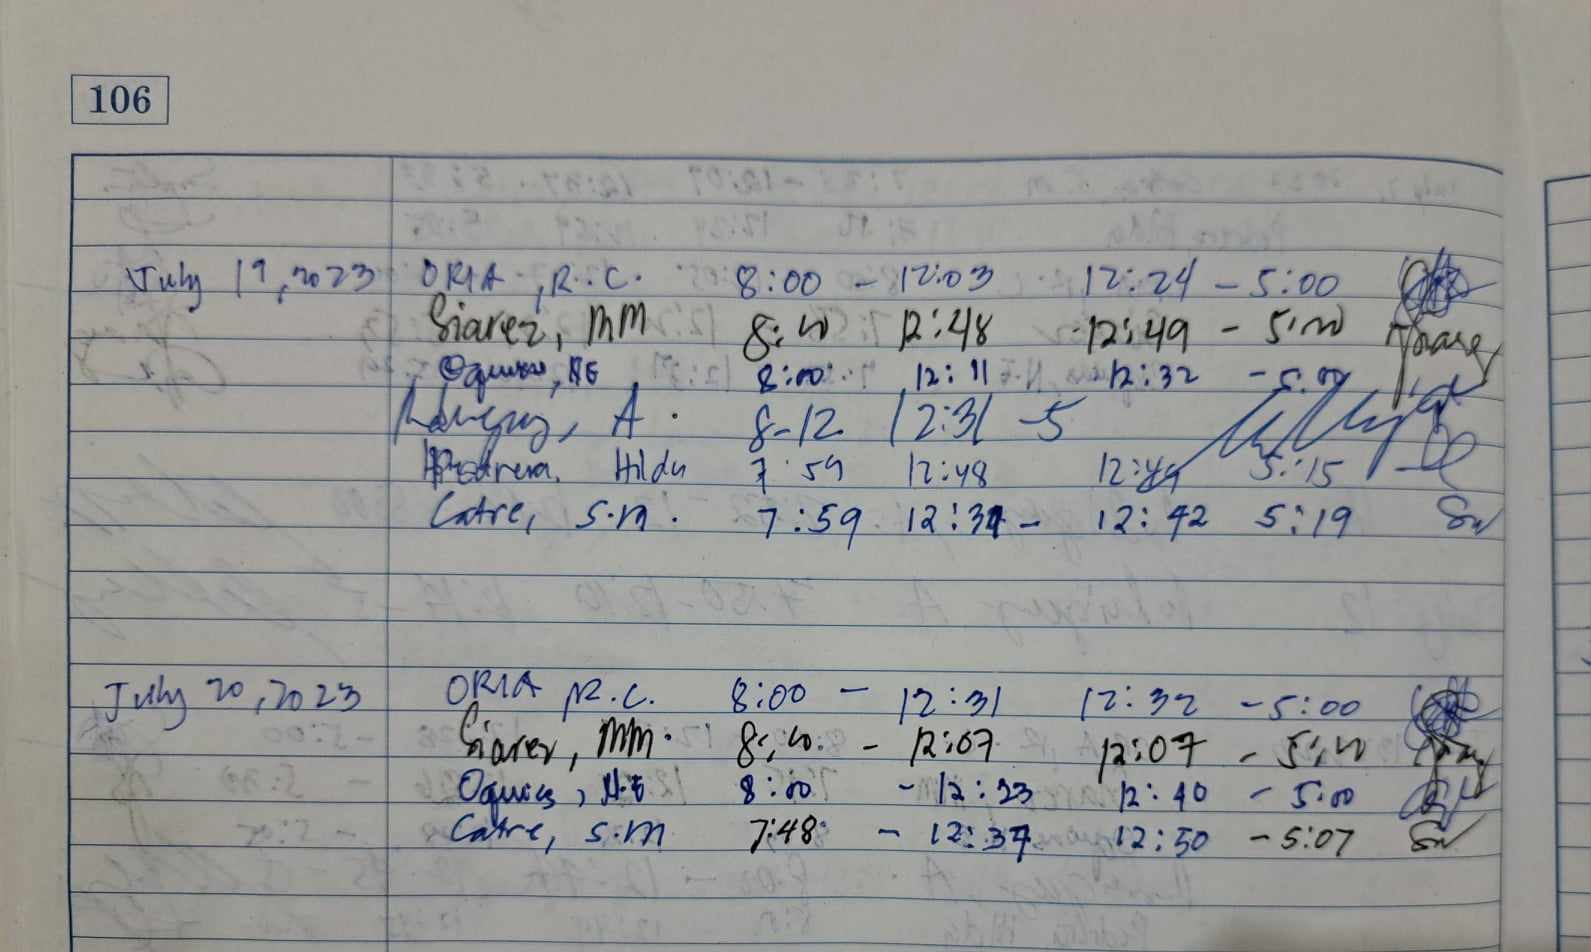 106
July 19, 2023 ORIA, R.C. 8:00 - 12:03 12:24 - 5:00
Siarez, MM 8:00 12:48 12:49 - 5:00
NE 8:00 12:11 12:32 - 5:00
A. 8-12 12:31 - 5
Hilda 7:59 12:48 12:49 5:15
Catre, S.M. 7:59 12:37 - 12:42 5:19
July 20, 2023 ORIA, R.C. 8:00 - 12:31 12:32 - 5:00
Siarez, MM. 8:00 - 12:07 12:07 - 5:00
8:00 - 12:23 12:40 - 5:00
Catre, S.M 7:48 - 12:37 12:50 - 5:07